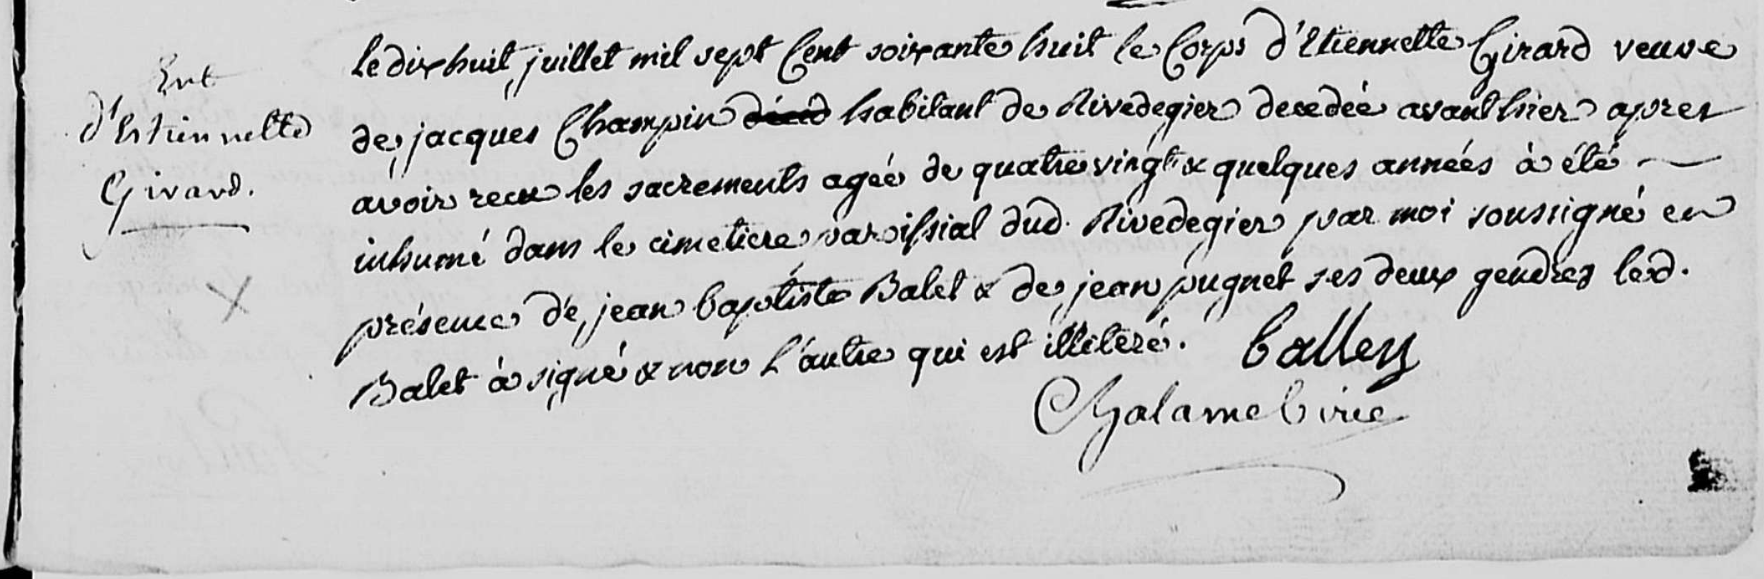 Ent
d'Estiennette
Girard.
le dix huit juillet mil sept Cent soixante huit le Corps d'Etiennette Girard veuve
de jacques Champin décéd habitant de Rivedegier decedée avanthier apres
avoir recu les sacrements agée de quatre vingt & quelques années à été
inhumé dans le cimetiere paroissial dud. Rivedegier par moi soussigné en
présence de jean baptiste Balet & de jean pugnet ses deux gendres led.
Balet à signé & non l'autre qui est illiteré. balley
Chalame vic